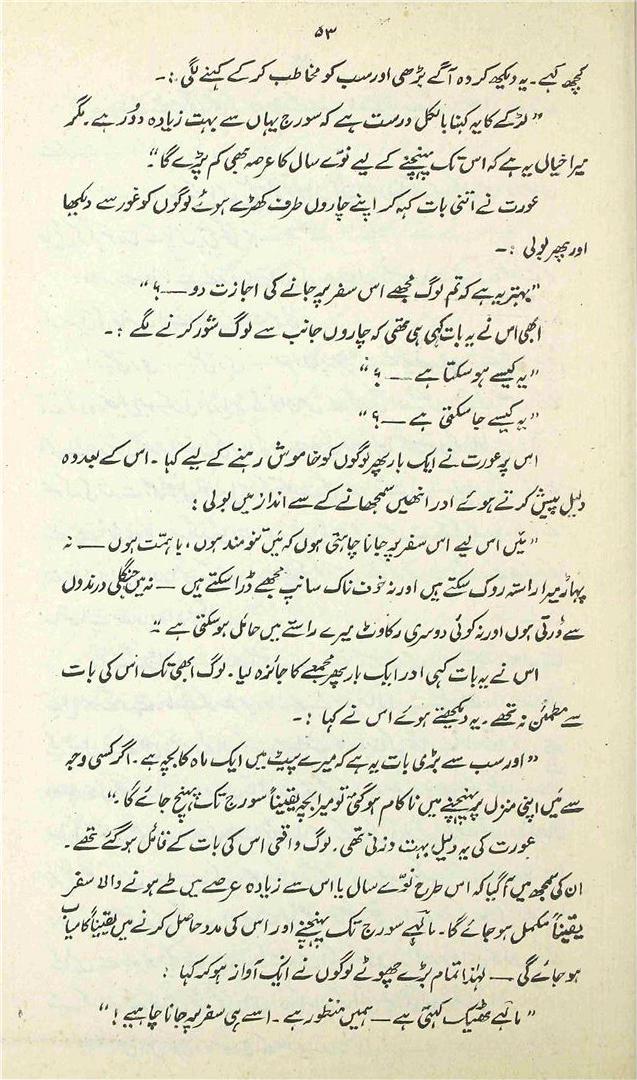 ۵۳
کچھ کہے۔ یہ دیکھ کر وہ آگے بڑھی اور سب کو مخاطب کر کے کہنے لگی :۔
”لڑکے کا یہ کہنا بالکل درست ہے کہ سورج یہاں سے بہت زیادہ دُور ہے۔ مگر
میرا خیال یہ ہے کہ اس تک پہنچنے کے لیے نوّے سال کا عرصہ بھی کم پڑے گا“۔
عورت نے اتنی بات کہہ کر اپنے چاروں طرف کھڑے ہوئے لوگوں کو غور سے دیکھا
اور پھر بولی :۔
”بہتر یہ ہے کہ تم لوگ مجھے اس سفر پہ جانے کی اجازت دو ــــ ؟“
ابھی اس نے یہ بات کہی ہی تھی کہ چاروں جانب سے لوگ شور کرنے لگے :۔
”یہ کیسے ہو سکتا ہے ــــ ؟“
”یہ کیسے جا سکتی ہے ــــ ؟“
اس پر عورت نے ایک بار پھر لوگوں کو خاموش رہنے کے لیے کہا۔ اس کے بعد وہ
دلیل پیش کرتے ہوئے اور انھیں سمجھانے کے سے انداز میں بولی :
”میں اس لیے اس سفر پہ جانا چاہتی ہوں کہ میں تنومند ہوں، باہمّت ہوں ــــ نہ
پہاڑ میرا راستہ روک سکتے ہیں اور نہ خوف ناک سانپ مجھے ڈرا سکتے ہیں ــــ نہ میں جنگلی درندوں
سے ڈرتی ہوں اور نہ کوئی دوسری رکاوٹ میرے راستے میں حائل ہو سکتی ہے“۔
اس نے یہ بات کہی اور ایک بار پھر مجمعے کا جائزہ لیا۔ لوگ ابھی تک اس کی بات
سے مطمئن نہ تھے۔ یہ دیکھتے ہوئے اس نے کہا :۔
”اور سب سے بڑی بات یہ ہے کہ میرے پیٹ میں ایک ماہ کا بچہ ہے۔ اگر کسی وجہ
سے میں اپنی منزل پر پہنچنے میں ناکام ہو گئی تو میرا بچہ یقیناً سورج تک پہنچ جائے گا“۔
عورت کی یہ دلیل بہت وزنی تھی۔ لوگ واقعی اس کی بات کے قائل ہو گئے تھے۔
ان کی سمجھ میں آ گیا کہ اس طرح نوّے سال یا اس سے زیادہ عرصے میں طے ہونے والا سفر
یقیناً مکمل ہو جائے گا۔ ماہیے سورج تک پہنچنے اور اس کی مدد حاصل کرنے میں یقیناً کامیاب
ہو جائے گی ــــ لہٰذا تمام بڑے چھوٹے لوگوں نے ایک آواز ہو کر کہا :
”ماہیے ٹھیک کہتی ہے ــــ ہمیں منظور ہے۔ اسے ہی سفر پہ جانا چاہیے !“